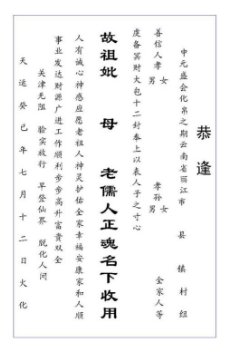 恭逢
中元盛会化帛之期云南省丽江市 县 镇 村 组
善信人孝 男 女 孝孙 男 女 全家人等
虔备冥财大包十二封奉上以表人子之寸心
故祖妣 母 老儒人正魂名下收用
人有诚心神感应愿老祖人神灵护佑全家幸福安康家和人顺
事业发达财源广进工作顺利步步高升富贵双全
关津无阻 验实放行 早登仙界 脱化人间
天运癸巳年七月十二日火化